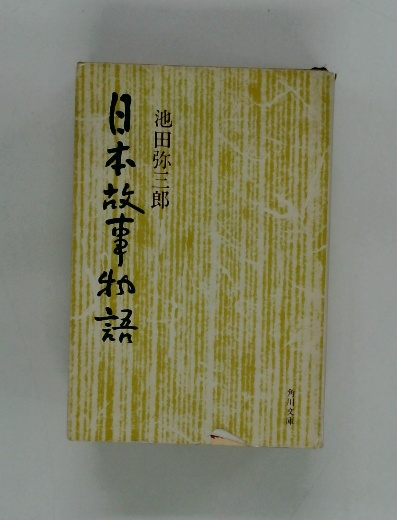 日本故事物語
池田弥三郎
角川文庫